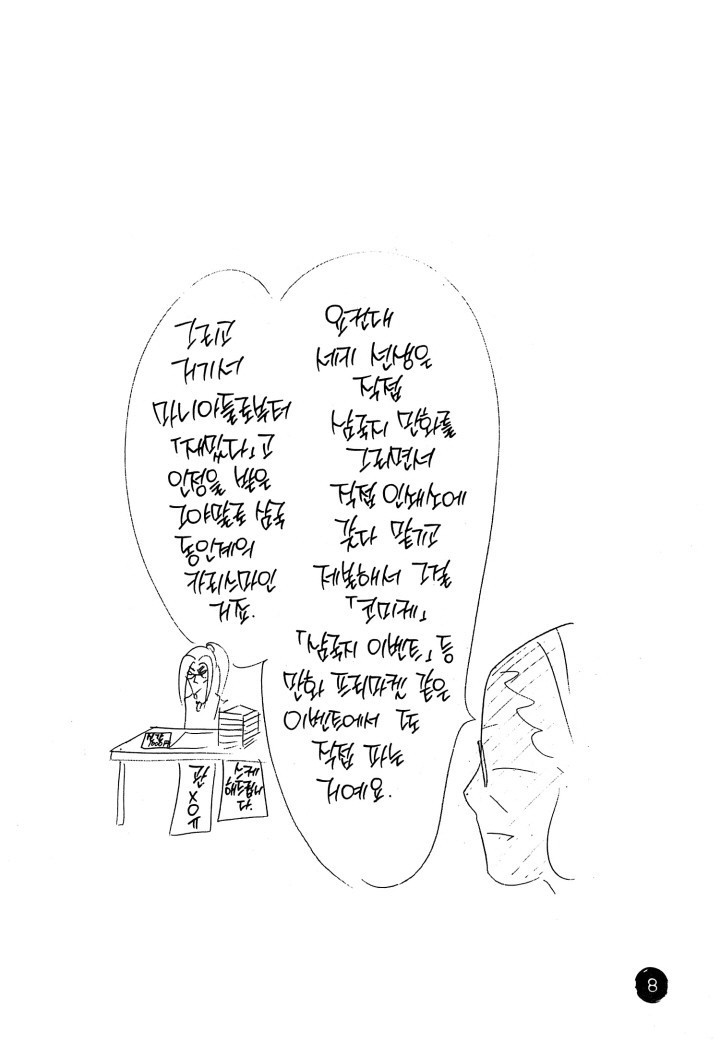 요컨대
세키 선생은
직접
삼국지 만화를
그리면서
직접 인쇄소에
갖다 맡기고
제본해서 그걸
「코미케」
「삼국지 이벤트」등
만화 프리마켓 같은
이벤트에서 또
직접 파는
거예요.
그리고
거기서
마니아들로부터
「재밌다」고
인정을 받은
그야말로 삼국
동인계의
카리스마인
거죠.
신간
관
X
유
스케
해드립니
다.
8